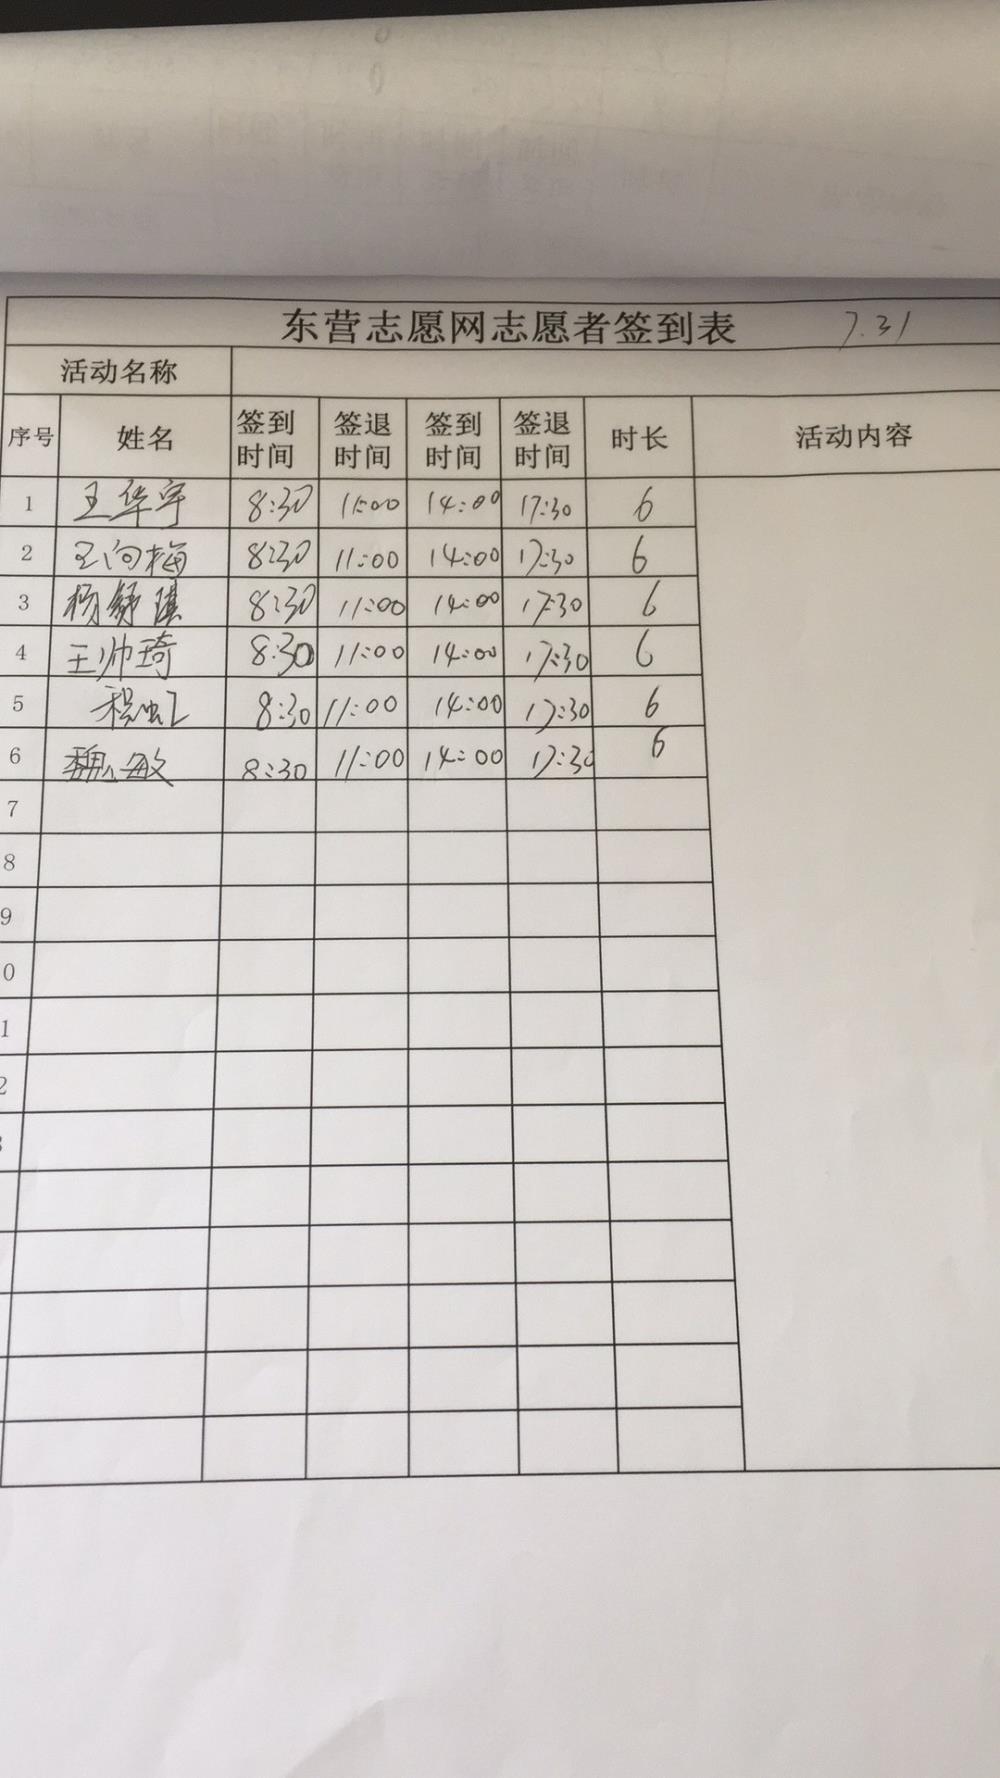 东营志愿网志愿者签到表 7.31
活动名称
序号 姓名 签到时间 签退时间 签到时间 签退时间 时长 活动内容
1 王华宇 8:30 11:00 14:00 17:30 6
2 王向梅 8:30 11:00 14:00 17:30 6
3 杨舒淇 8:30 11:00 14:00 17:30 6
4 王帅琦 8:30 11:00 14:00 17:30 6
5 8:30 11:00 14:00 17:30 6
6 魏敏 8:30 11:00 14:00 17:30 6
7
8
9
0
1
2